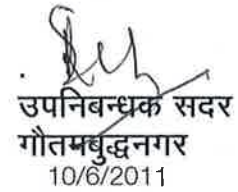 उपनिबन्धक सदर
गौतमबुद्धनगर
10/6/2011